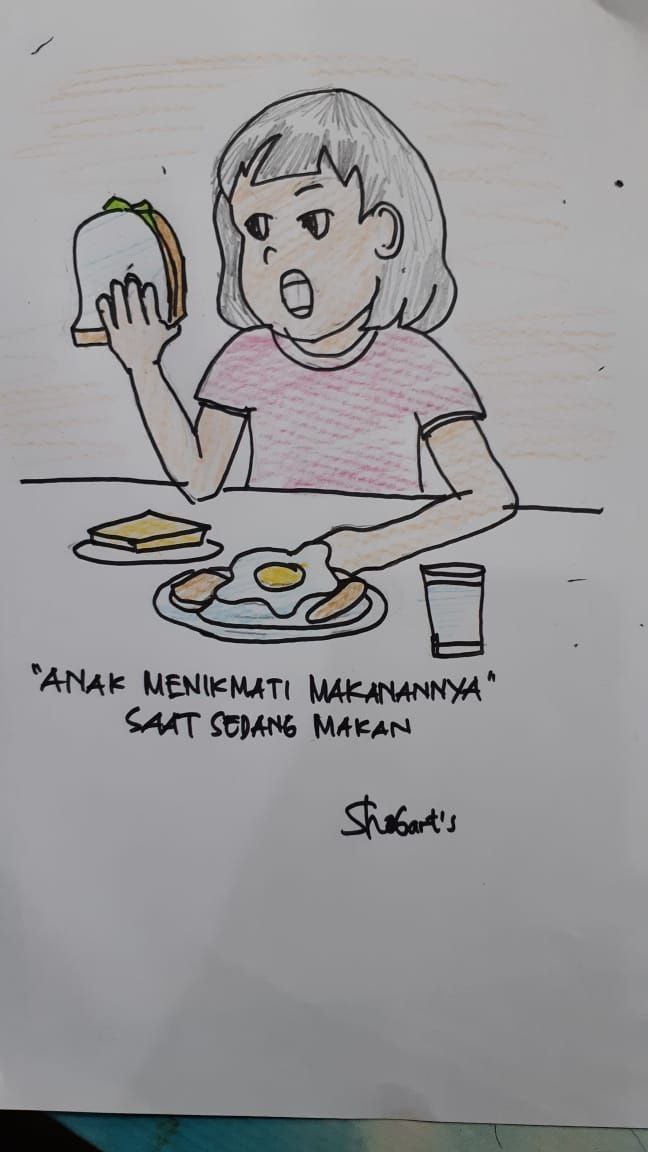 "ANAK MENIKMATI MAKANANNYA"
SAAT SEDANG MAKAN